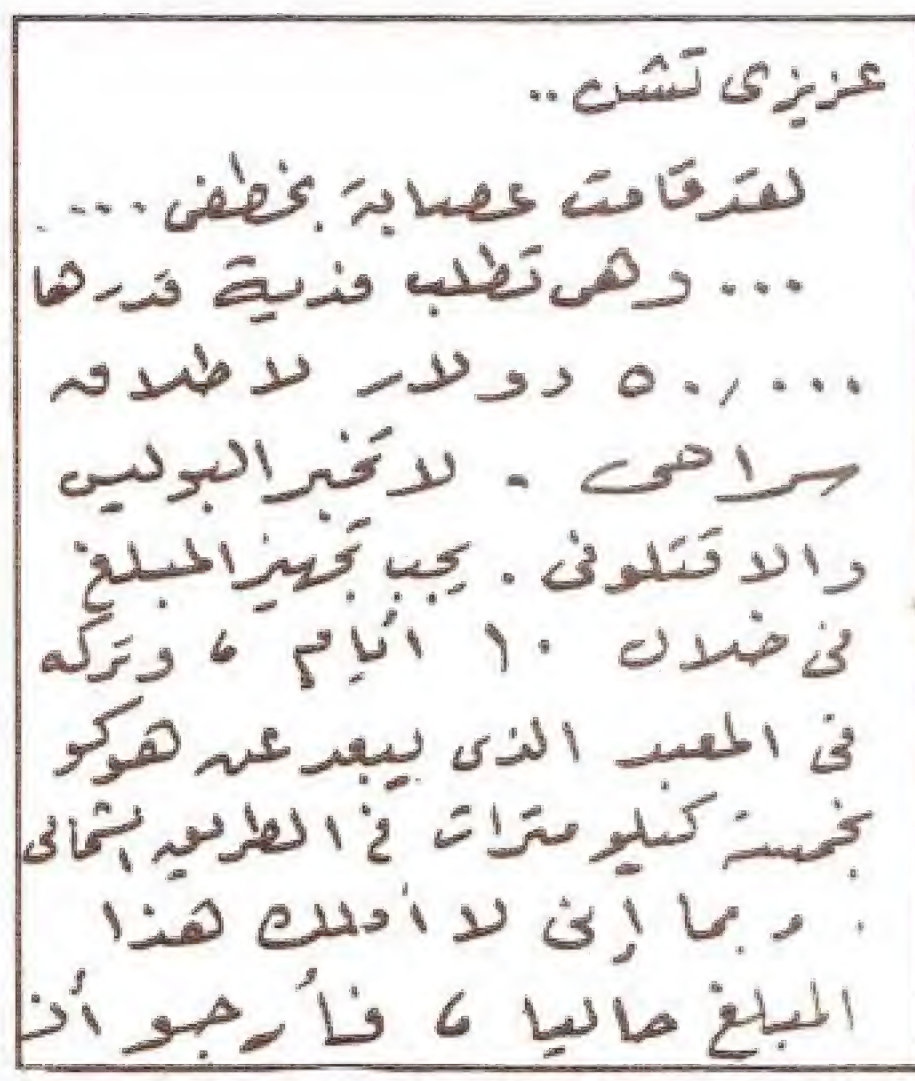 عزيزى تشن ..
لقد قامت عصابة بخطفى ...
... وهى تطلب فدية قدرها
٥٠,٠٠٠ دولار لاطلاق
سراحى . لا تخبر البوليس
والا قتلونى . يجب تجهيز المبلغ
فى خلال ١٠ أيام ، وتركه
فى المعبد الذى يبعد عن هوكو
بخمسة كيلو مترات فى الطريق الشمالى
. وبما إنى لا أملك هذا
المبلغ حاليا ، فأرجو أن